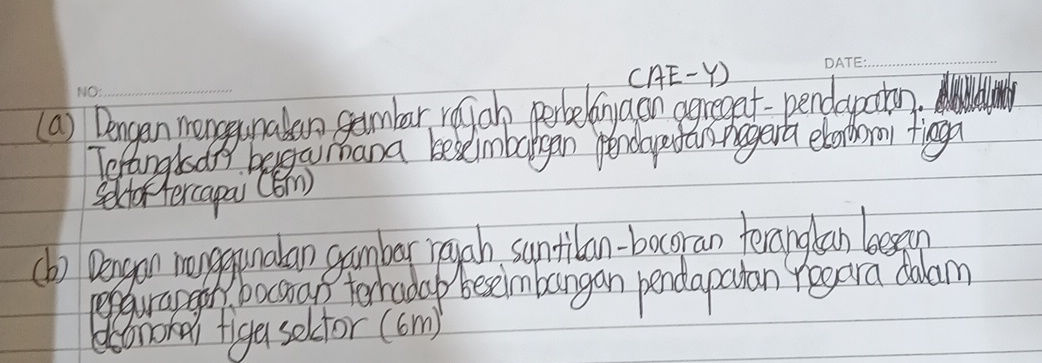 NO:
DATE:
(AE-Y)
(a) Dengan menggunakan gambar rajah perbelanjaan agregat-pendapatan.
Terangkan bagaimana keseimbangan pendapatan negara ekonomi tiga
sektor tercapai (6m)
(b) Dengan menggunakan gambar rajah suntikan-bocoran terangkan kesan
pengurangan bocoran terhadap keseimbangan pendapatan negara dalam
ekonomi tiga sektor (6m)